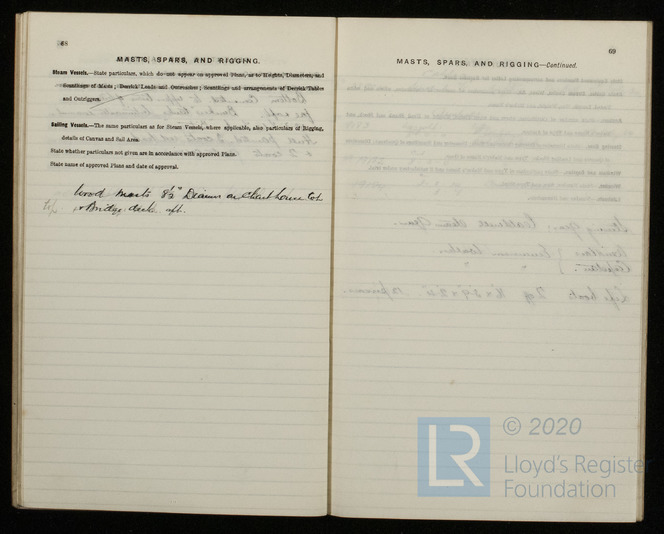 68
MASTS, SPARS, AND RIGGING.
Steam Vessels.—State particulars, which do not appear on approved Plans, as to Heights, Diameters, and
Scantlings of Masts; Derrick Loads and Outreaches; Scantlings and arrangements of Derrick Tables
and Outriggers.
Sailing Vessels.—The same particulars as for Steam Vessels, where applicable, also particulars of Rigging,
details of Canvas and Sail Area.
State whether particulars not given are in accordance with approved Plans.
State name of approved Plans and date of approval.
Wood masts 8½" Diam on Chart house top
& Bridge deck aft.
69
MASTS, SPARS, AND RIGGING—Continued.
LR
© 2020
Lloyd's Register
Foundation